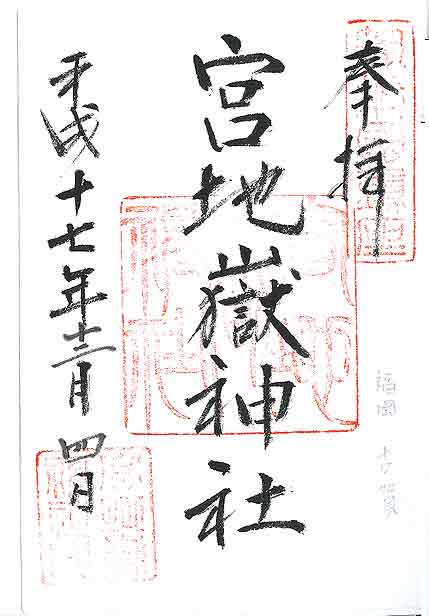 奉拝
宮地嶽神社
平成十七年十二月四日
福岡 古賀